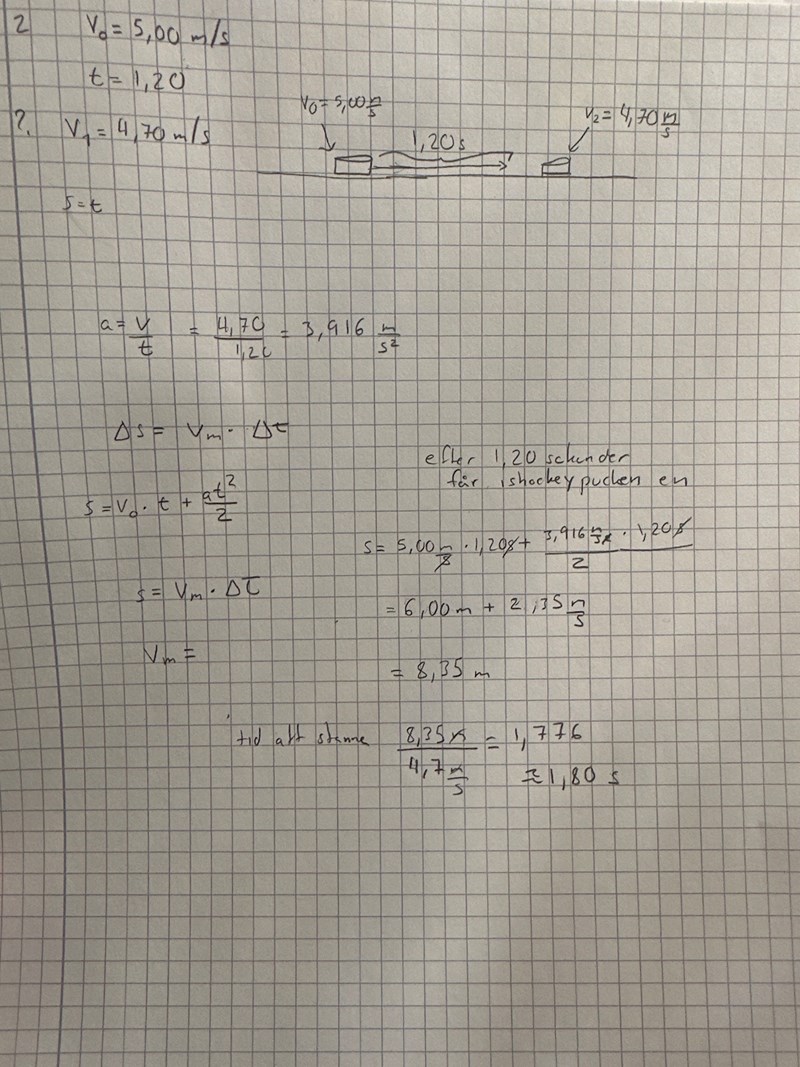 2 V₀ = 5,00 m/s
t = 1,20
?. V₁ = 4,70 m/s
V0 = 5,00 m/s
1,20 s
V₂ = 4,70 m/s
s = t
a = v/t = 4,70/1,20 = 3,916 m/s²
Δs = Vm · Δt
efter 1,20 sekunder
får ishockeypucken en
s = V₀ · t + at²/2
s = 5,00 m/s · 1,20s + 3,916 m/s² · 1,20s/2
s = Vm · Δt
= 6,00 m + 2,35 m/s
Vm =
= 8,35 m
tid att stanna 8,35 m/4,7 m/s = 1,776
≈ 1,80 s